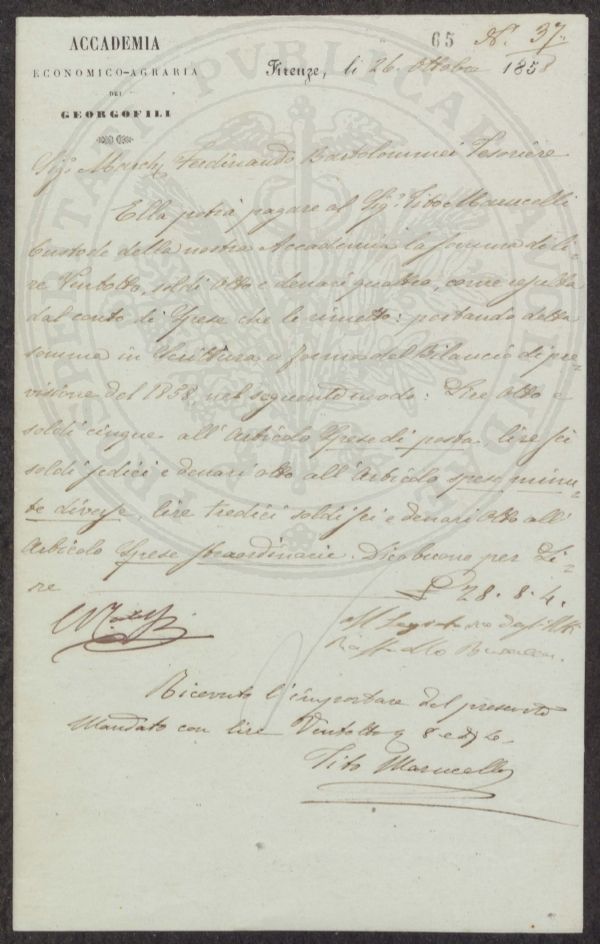 ACCADEMIA
ECONOMICO-AGRARIA
DEI
GEORGOFILI
65 N.° 37.
Firenze, li 26. Ottobre 1858
Sig.r March. Ferdinando Bartolommei Tesoriere
Ella potrà pagare al Sig.r Tito Marucelli
Custode della nostra Accademia la somma di li-
re Ventotto, soldi otto e denari quattro, come resulta
dal conto di Spese che le rimetto: portando detta
somma in Scrittura a forma del Bilancio di pre-
visione del 1858 nel seguente modo: Lire otto e
soldi cinque all'Articolo Spese di posta. lire sei
soldi sedici e denari otto all'Articolo spese minu-
te diverse, lire tredici soldi sei e denari otto all'
Articolo Spese straordinarie. Dico buono per Li-
re £ 28. 8. 4.
Il Segretario degli Atti
Ricevuto l'importare del presente
Mandato con lire Ventotto 8 e
Tito Marucelli
PROSPERITATI PUBLICAE AUGENDAE